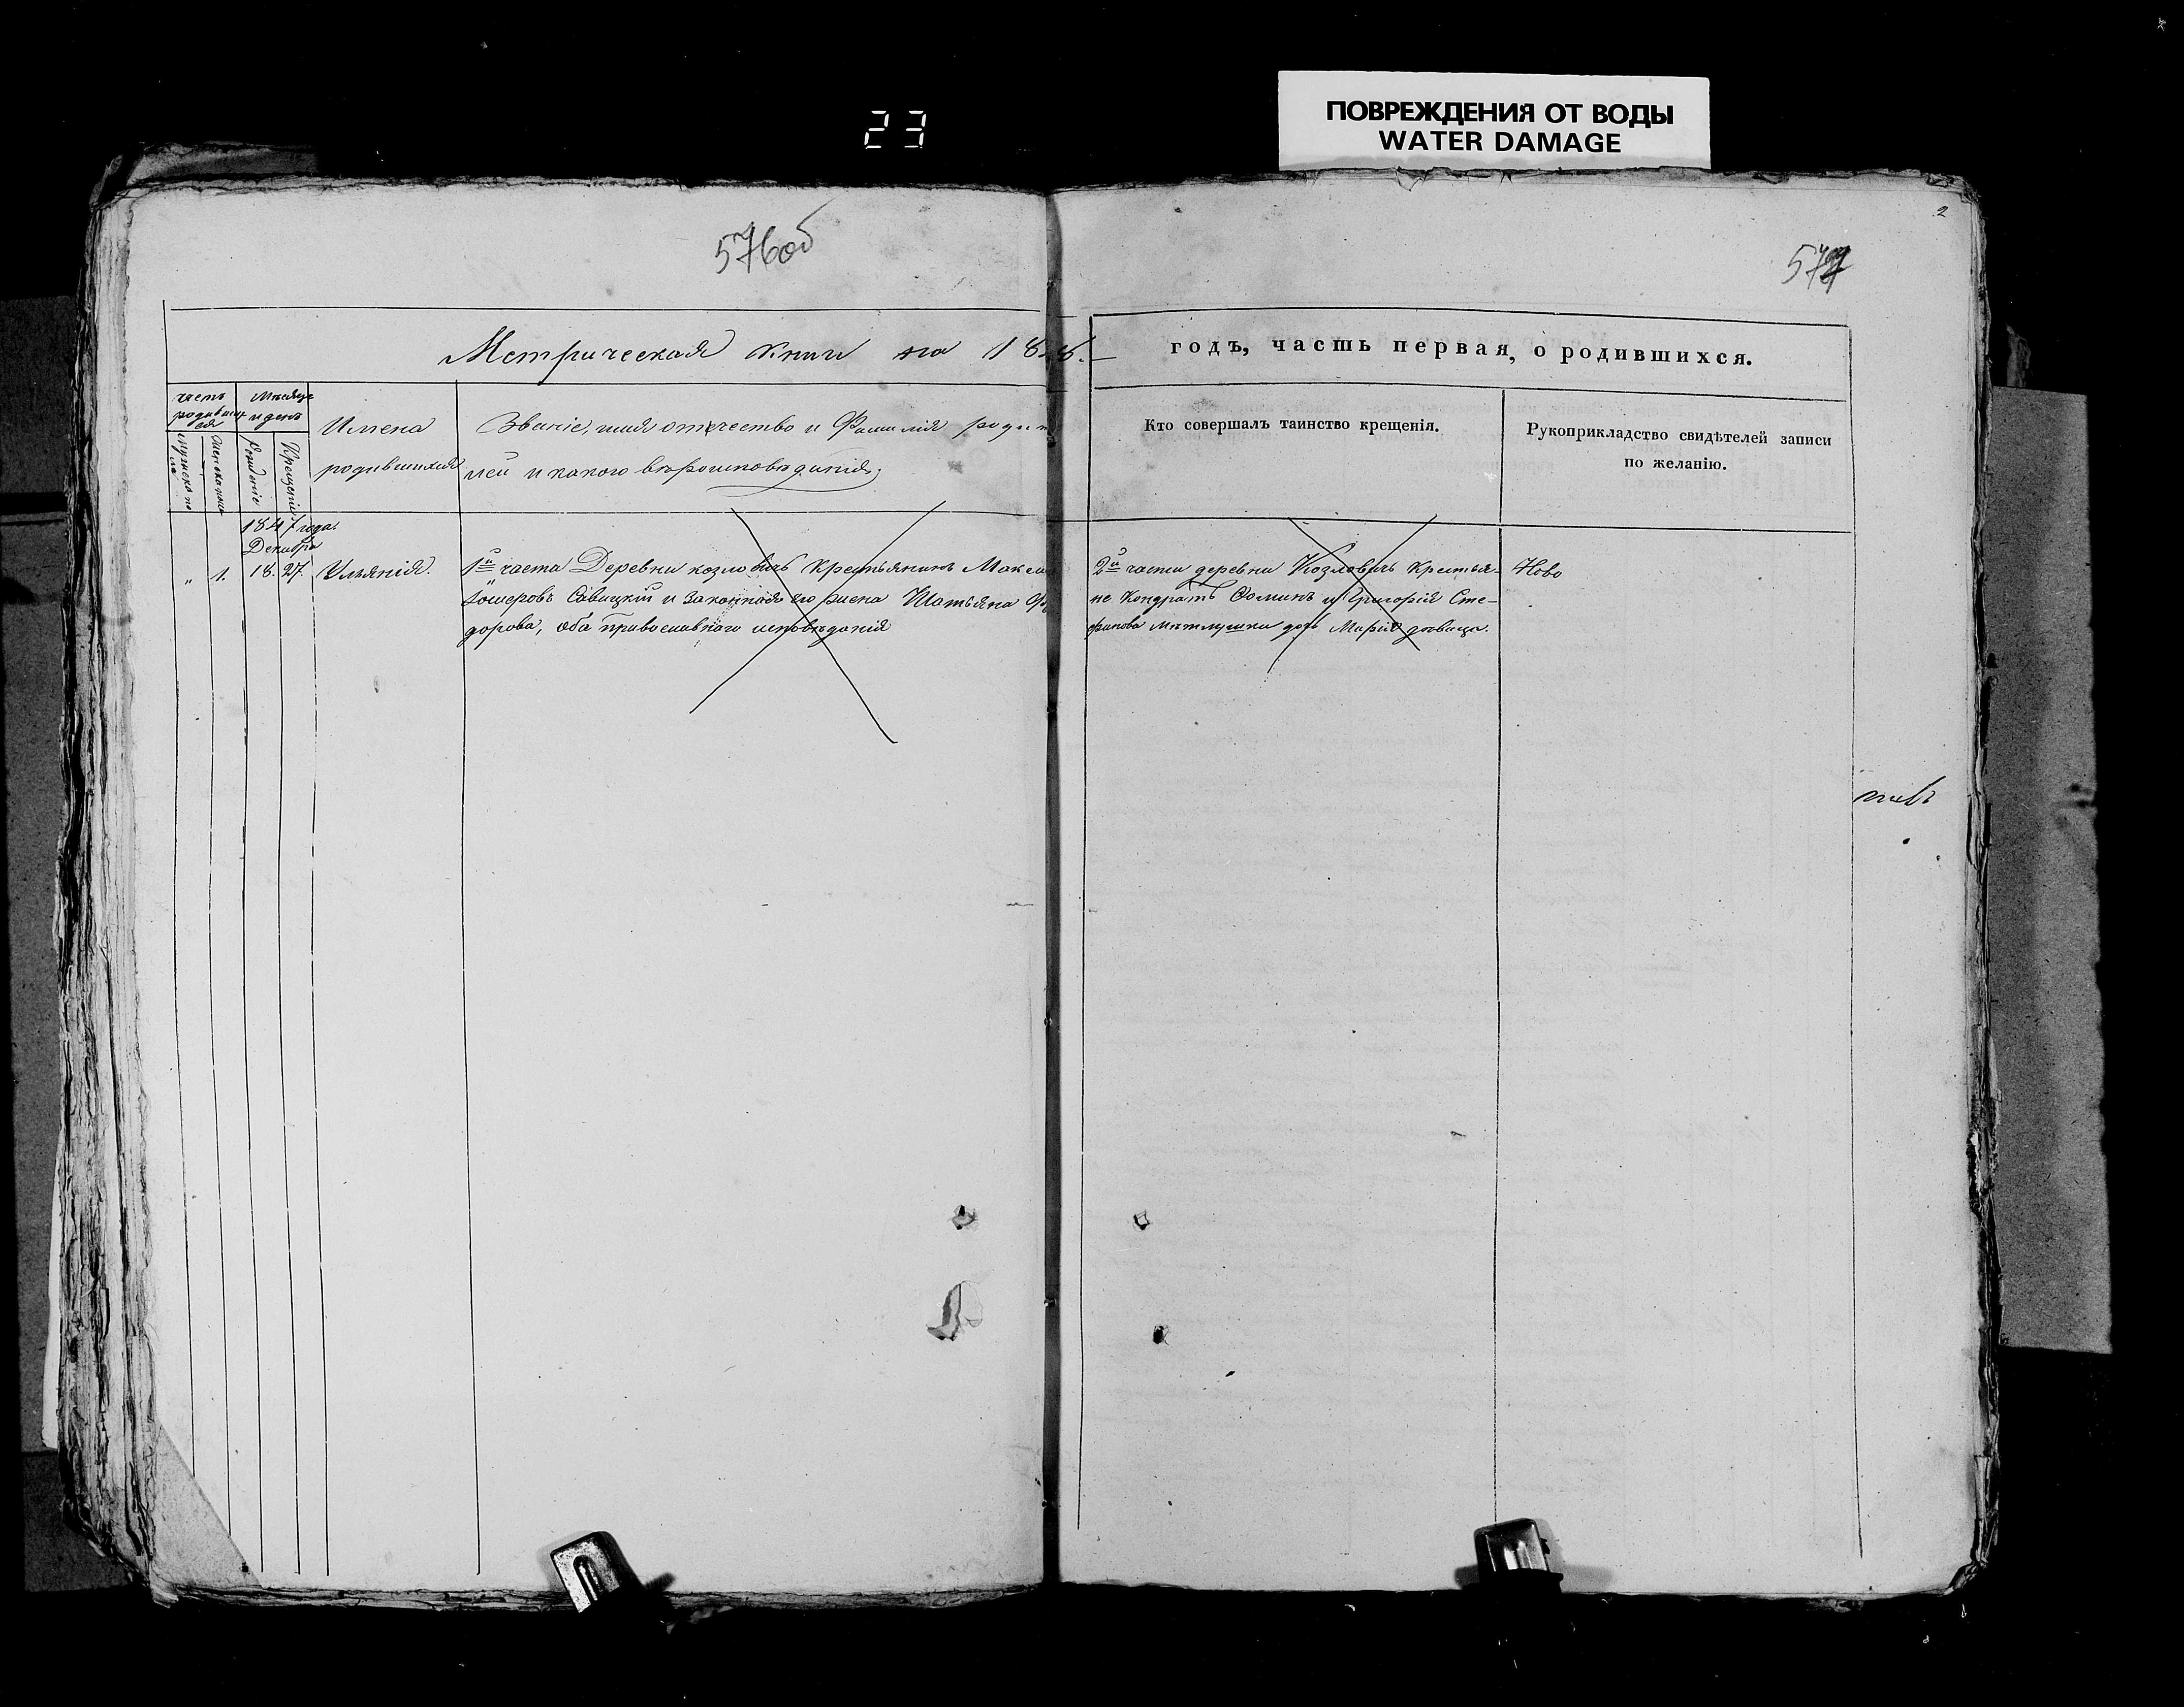 23
ПОВРЕЖДЕНИЯ ОТ ВОДЫ
WATER DAMAGE
2
576об
Метрическая книга на 18
годъ, часть первая, о родившихся.
Мѣсяцъ
и день
Имена
родившихся
Званіе, имя отечество и Фамилія роди
лей и какого вѣроисповѣданія.
Кто совершалъ таинство крещенія.
Рукоприкладство свидѣтелей записи
по желанію.
1847 года.
Декабря
„ 1. 18. 27. Ульянія.
1й части Деревни козловичъ Крестьянинъ Макси
Савицкій и Законная его жена Татьяна Фе
дорова, оба православнаго исповѣданія
2й части деревни Козловичъ Крестья-
не Кондратъ Фоминъ и Григорія Сте-
фанова дочь Марія дѣвица.
Ново